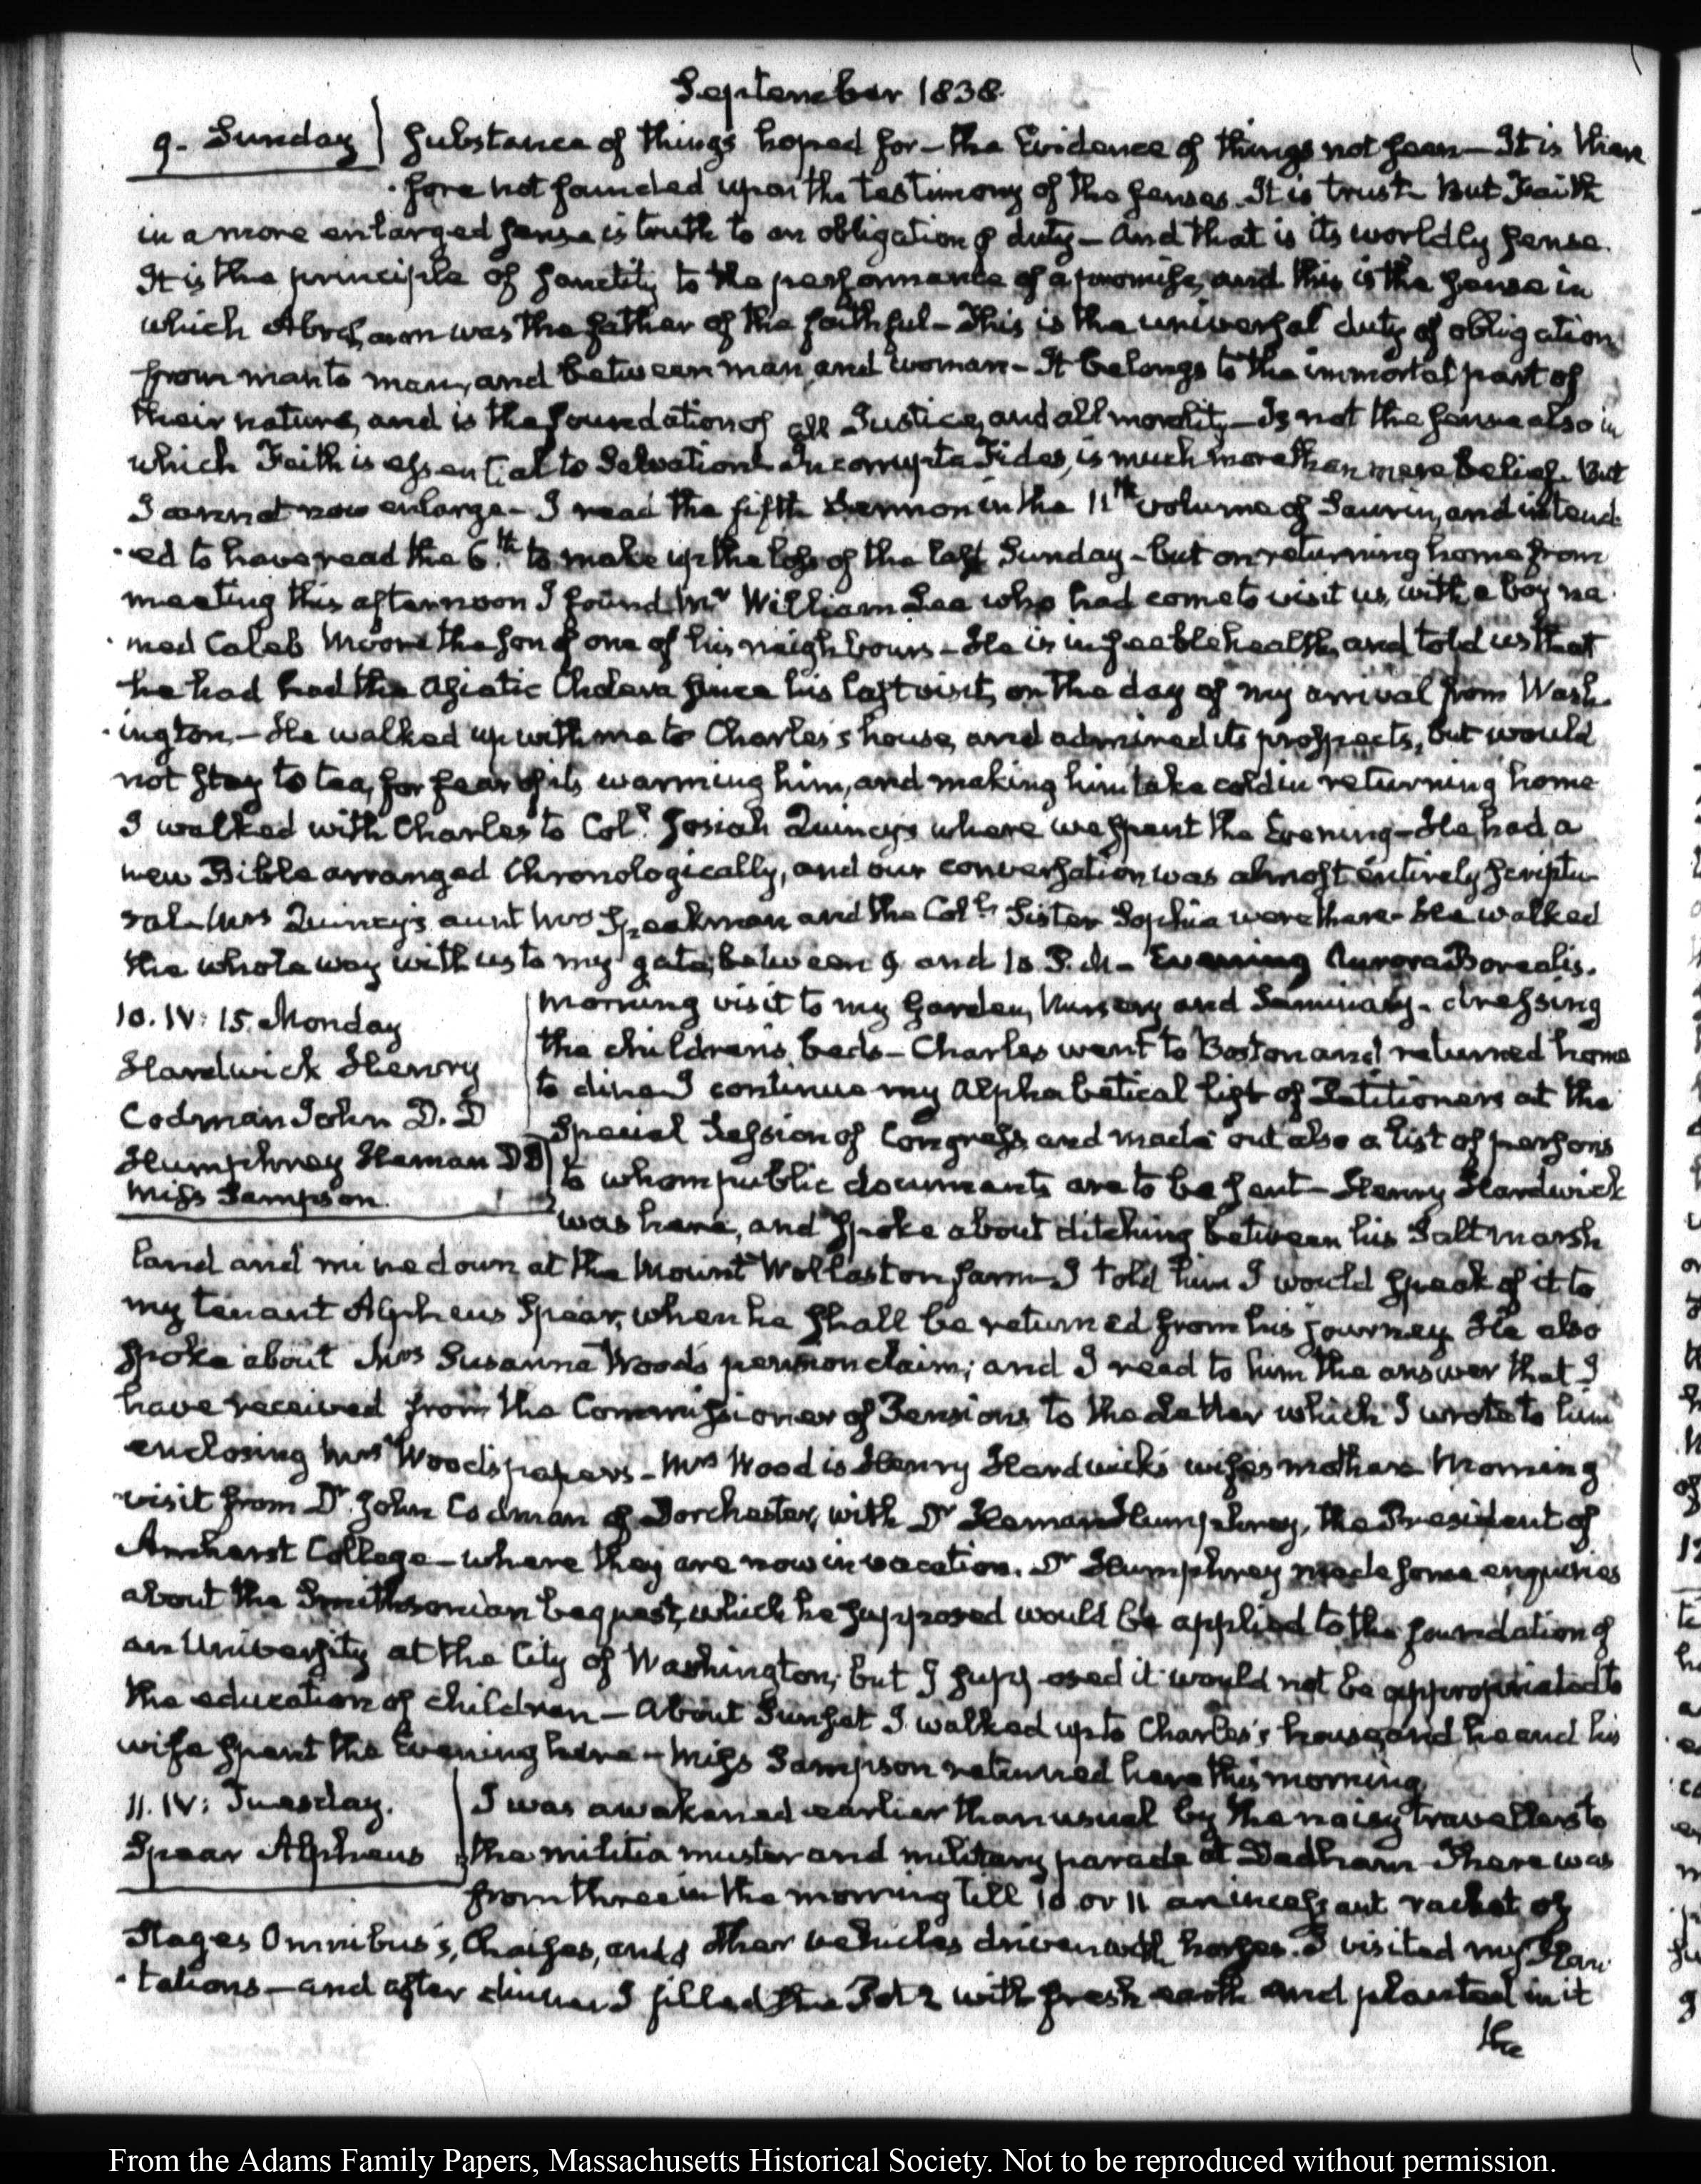 September 1838.
9. Sunday Substance of things hoped for – the Evidence of things not seen – It is there
fore not founded upon the testimony of the senses. It is trust – But Faith
in a more enlarged sense, is truth to an obligation of duty – and that is its worldly sense.
It is the principle of sanctity to the performance of a promise, and this is the sense in
which Abraham was the father of the faithful – This is the universal duty of obligation
from man to man, and between man and woman – It belongs to the immortal part of
their nature, and is the foundation of all Justice, and all morality – Is not the sense also in
which Faith is essential to Salvation? Incorrupta Fides, is much more than mere belief. But
I cannot now enlarge – I read the fifth Sermon in the 11th volume of Saurin, and intend
ed to have read the 6th to make up the loss of the last Sunday – but on returning home from
meeting this afternoon I found Mr William Lee who had come to visit us, with a boy na
med Caleb Moore the son of one of his neighbours – He is in feeble health, and told us that
he had had the Asiatic Cholera since his last visit, on the day of my arrival from Wash
ington – He walked up with me to Charles's house, and admired its prospects, but would
not stay to tea, for fear of its warming him, and making him take cold in returning home
I walked with Charles to Col. Josiah Quincy's where we spent the Evening – He had a
new Bible arranged Chronologically, and our conversation was almost entirely scriptu
ral – Mrs Quincy's aunt Mrs Speakman and the Col's Sister Sophia were there – He walked
the whole way with us to my gate, between 9 and 10 P.M – Evening Aurora Borealis.
10. IV: 15. Monday
Hardwick Henry
Codman John D. D
Humphrey Heman DD
Miss Sampson.
Morning visit to my Garden, Nursery and Seminary – dressing
the children's beds – Charles went to Boston and returned home
to dine. I continue my Alphabetical list of Petitioners at the
Special Session of Congress, and made out also a list of persons
to whom public documents are to be sent – Henry Hardwick
was here, and spoke about ditching between his Salt marsh
land and mine down at the Mount Wollaston farm – I told him I would speak of it to
my tenant Alpheus Spear, when he shall be returned from his journey. He also
spoke about Mrs Susanna Wood's pension claim; and I read to him the answer that I
have received from the Commissioner of Pensions, to the letter which I wrote to him
enclosing Mrs Wood's papers – Mrs Wood is Henry Hardwick's wife's mother – Morning
visit from Dr John Codman of Dorchester, with Dr Heman Humphrey, the President of
Amherst College – where they are now in vacation. Dr Humphrey made some enquiries
about the Smithsonian bequest, which he supposed would be applied to the foundation of
an University at the City of Washington; but I supposed it would not be appropriated to
the education of children – About Sunset I walked up to Charles's house, and he and his
wife spent the Evening here – Miss Sampson returned here this morning.
11. IV: Tuesday.
Spear Alpheus
I was awakened earlier than usual by the noisy travellers to
the militia muster and military parade at Dedham – There was
from three in the morning till 10 or 11 an incessant racket of
Stages Omnibus's, Chaises, and other vehicles driven with horses. I visited my Plan
tations – and after dinner I filled the Pot 2 with fresh earth and planted in it
the
From the Adams Family Papers, Massachusetts Historical Society. Not to be reproduced without permission.